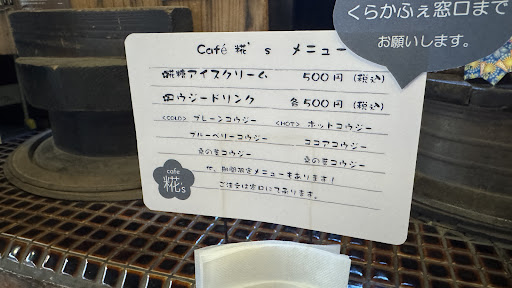 くらかふぇ窓口まで
お願いします。
Café 糀's メニュー
糀アイスクリーム 500円 (税込)
コウジードリンク 各500円 (税込)
<COLD> プレーンコウジー <HOT> ホットコウジー
ブルーベリーコウジー ココアコウジー
桑の葉コウジー 桑の葉コウジー
他、期間限定メニューもあります!
ご注文は窓口にて承ります。
cafe
糀s